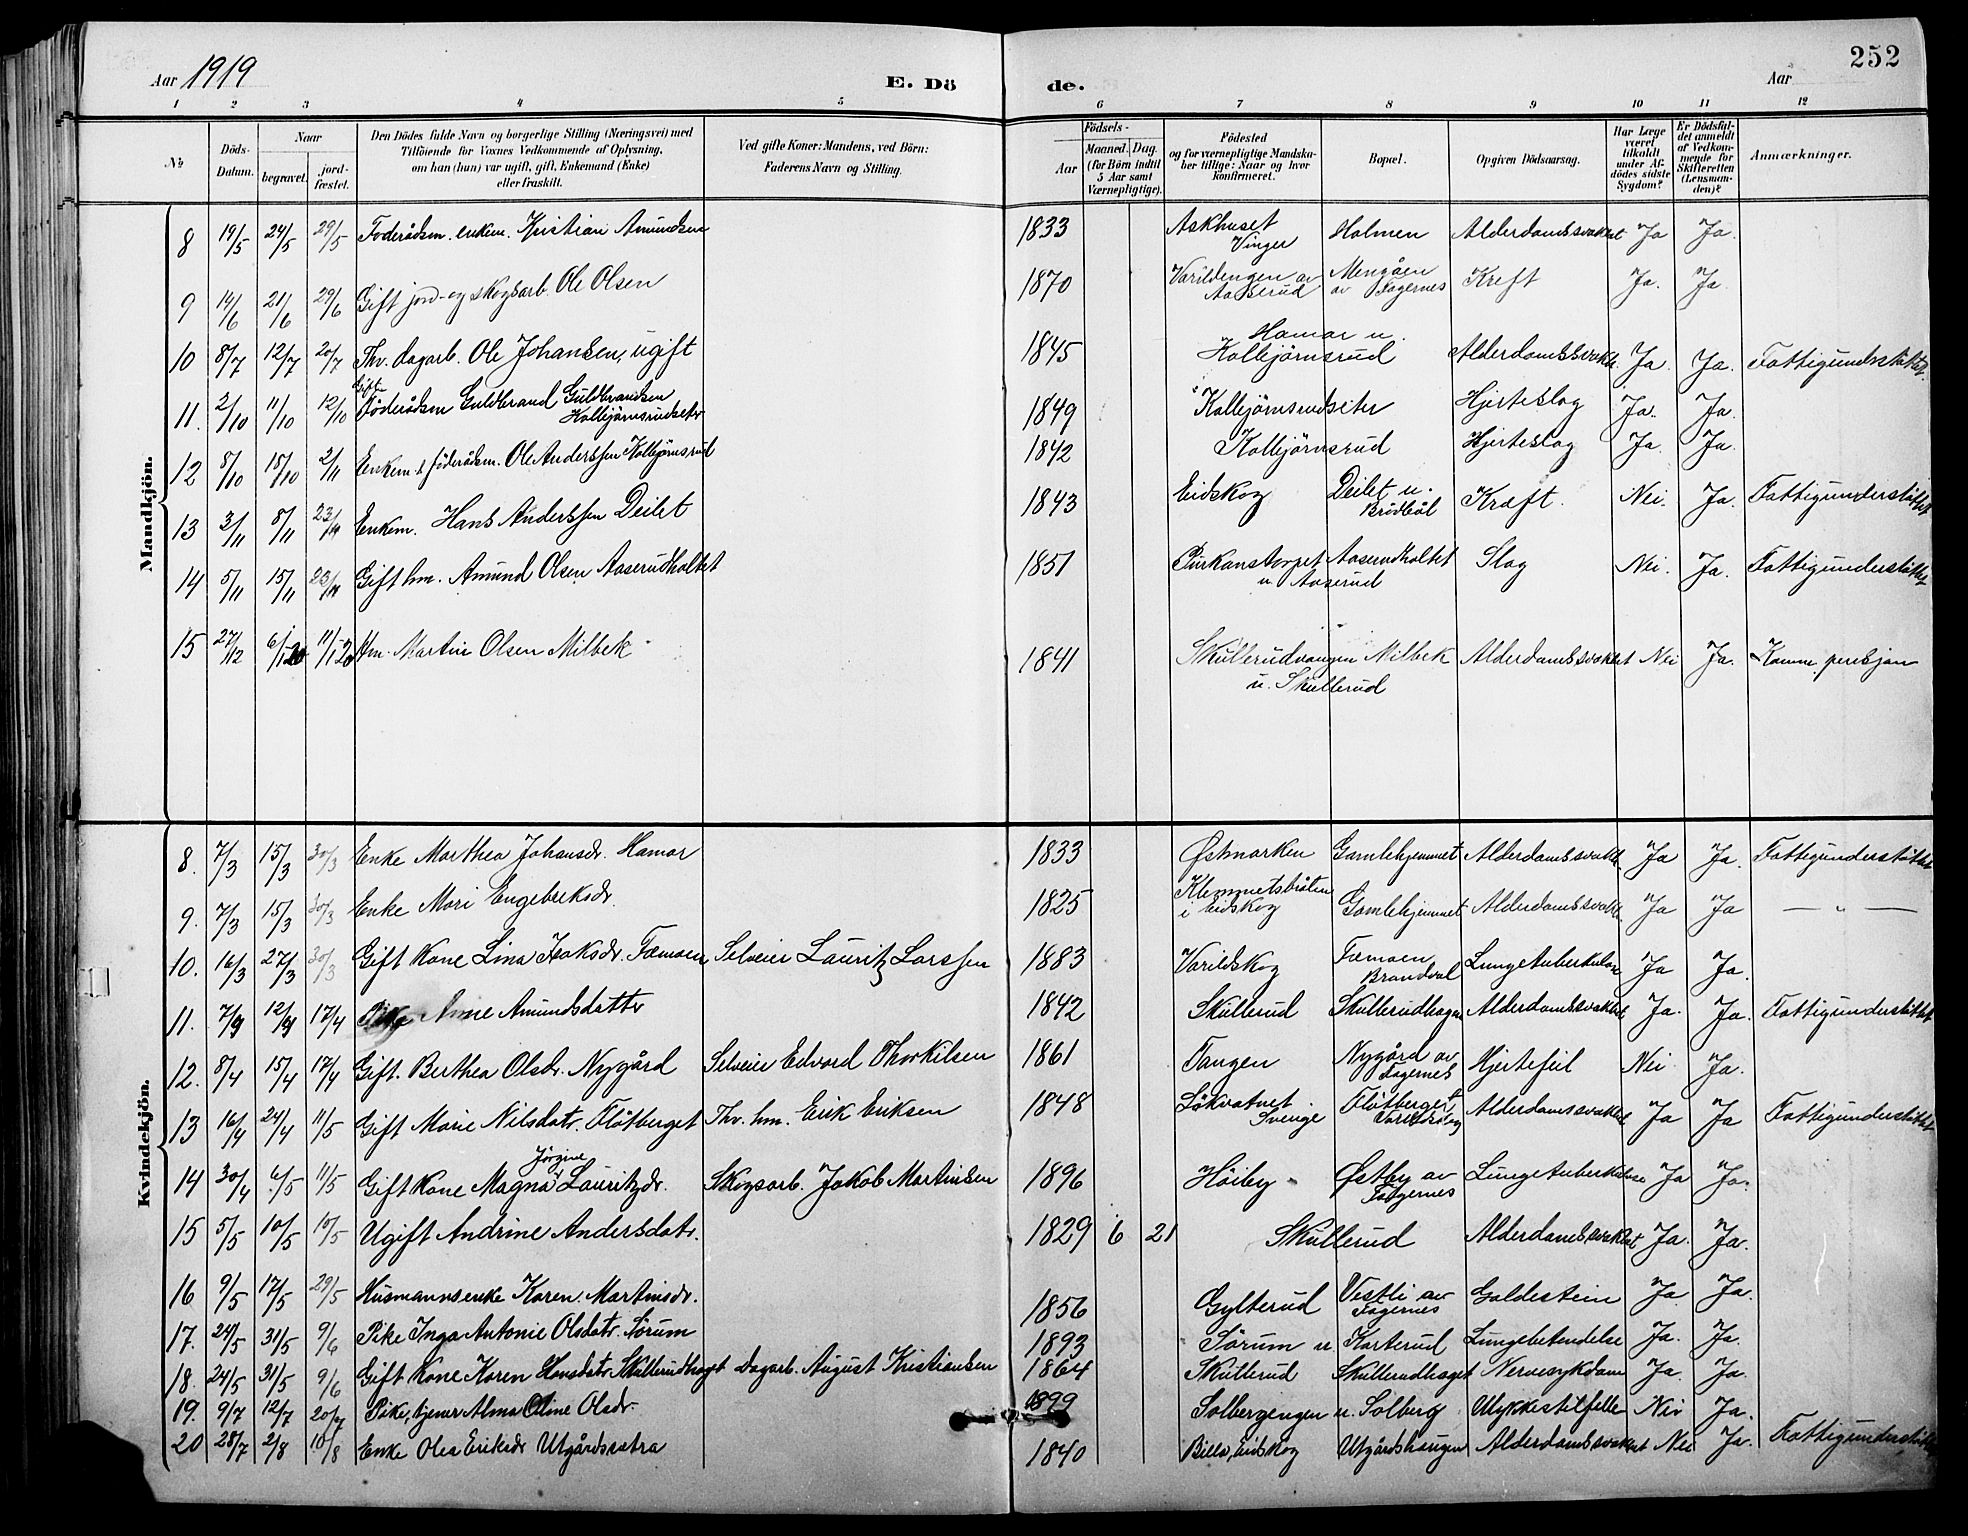 Aar 1919
E. Dö de.
Aar
252
1 2 3 4 5 6 7 8 9 10 11 12
No
Döds-Datum.
Naar
begravet.
jord-fæstet.
Den Dödes fulde Navn og borgerlige Stilling (Næringsvei) med
Tilföiende for Voxnes Vedkommende af Oplysning,
om han (hun) var ugift, gift, Enkemand (Enke)
eller fraskilt.
Ved gifte Koner: Mandens, ved Börn:
Faderens Navn og Stilling.
Födsels-
Aar
Maaned. Dag.
(for Börn indtil
5 Aar samt
Værnepligtige).
Födested
og for værnepligtige Mandska-
ber tillige: Naar og hvor
konfirmeret.
Bopæl.
Opgiven Dödsaarsag.
Har Læge
været
tilkaldt
under Af-
dödes sidste
Sygdom?
Er Dödsfal-
det anmeldt
af Vedkom-
mende for
Skifteretten
(Lensman-
den)?
Anmærkninger.
Mandkjön.
8 19/5 24/5 29/5 Foderådsm. enkem. Kristian Amundsen 1833 Askhuset Vinger Holmen Alderdomssvakhet Ja Ja.
9 14/6 21/6 29/6 Gift jord- og skogsarb. Ole Olsen 1870 Varildengen av Aaserud Mengåen av Fagernes Kreft Ja. Ja
10 8/7 12/7 20/7 Thv. dagarb. Ole Johansen, ugift 1845 Hamar u. Kolbjörnsrud Alderdomssvakh. Ja. Ja. Fattigunderstöttet.
11. 2/10 11/10 12/10 Gift Föderådsm Guldbrand Guldbrandsen Kolbjörnsrudseter 1849 Kolbjörnsrudseter Hjerteslag Ja. Ja.
12 8/10 18/10 2/11 Enkem. & föderådsm. Ole Anderssen Kolbjörnsrud 1842 Kolbjörnsrud Hjerteslag Ja. Ja.
13 3/11 8/11 23/11 Enkem. Hans Anderssen Deilet 1843 Eidskog Deilet u. Brödböl Kræft. Nei. Ja. Fattigunderstöttet
14 5/11 15/11 23/11 Gift hm. Amund Olsen Aaserudholtet 1851 u. Aaserud Aaserudholtet Slag Nei. Ja. Fattigunderstöttet
15 27/12 6/1 20 11/1 20 Hm. Martin Olsen Milbek 1841 Skullerudvangen u. Skullerud Milbek Alderdomssvakhet Nei Ja. Komm. pensjon
Kvindekjön.
8. 7/3 15/3 30/3 Enke Marthea Johansdr. Hamar 1833 Østmarken Gamlehjemmet Alderdomssvakh. Ja Ja. Fattigunderstöttet
9. 7/3 15/3 30/3 Enke Mari Engebretsdr. 1825 Klemmetsbråten i Eidskog Gamlehjemmet Alderdomssvakh. Ja Ja — " —
10. 16/3 27/3 30/3 Gift Kone Lina Isaksdr. Tæmoen Selveier Lauritz Larssen 1883 Varildskog Tæmoen Brandval Lungetuberkulose Ja Ja.
11. 7/4 12/4 17/4 Pike Anne Amundsdatter 1842 Skullerud Skullerudhagen Alderdomssvakhet Ja. Ja. Fattigunderstöttet
12. 8/4 15/4 17/4 Gift. Berthea Olsdr. Nygård Selveier Edvard Thorkilsen 1861 Tangen Nygård av Fagernes Hjertefeil Nei Ja.
13 16/4 24/4 11/5 Gift Marie Nilsdatr. Flötberget Thv. hm. Erik Eriksen 1848 Lökvatnet Sverige Flötberget Varildskog Alderdomssvakhet Ja Ja Fattigunderstöttet
14 30/4 6/5 11/5 Gift Kone Magna Jörgine Lauritzdr. Skogsarb. Jakob Martinsen 1896 Höiby Østby av Fagernes Lungetuberkulose Ja Ja.
15 5/5 10/5 15/5 Ugift Andrine Andersdatr. 1829 6 21 Skullerud Alderdomssvakhet Ja. Ja.
16 9/5 17/5 29/5 Husmannsenke Karen Martinsdr. 1856 Gylterud Vestli av Fagernes Galdestein Ja Ja.
17. 24/5 31/5 9/6 Pike Inga Antonie Olsdatr. Sörum 1893 Sörum u. Karterud Lungebetendelse Ja. Ja.
18. 24/5 31/5 9/6 Gift Kone Karen Hansdatr. Skullerudhaget Dagarb. August Kristiansen 1864 Skullerud Skullerudhaget Nervesykdom Ja. Ja.
19. 9/7 12/7 20/7 Pike, tjener Alma Oline Olsdr. 1899 Solbergengen u. Solberg Ulykkestilfelle Nei Ja.
20 28/7 2/8 10/8 Enke Olea Eriksdr Utgårdssætra 1840 Billa, Eidskog Utgårdshaugen Alderdomssvakhet Nei Ja. Fattigunderstöttet